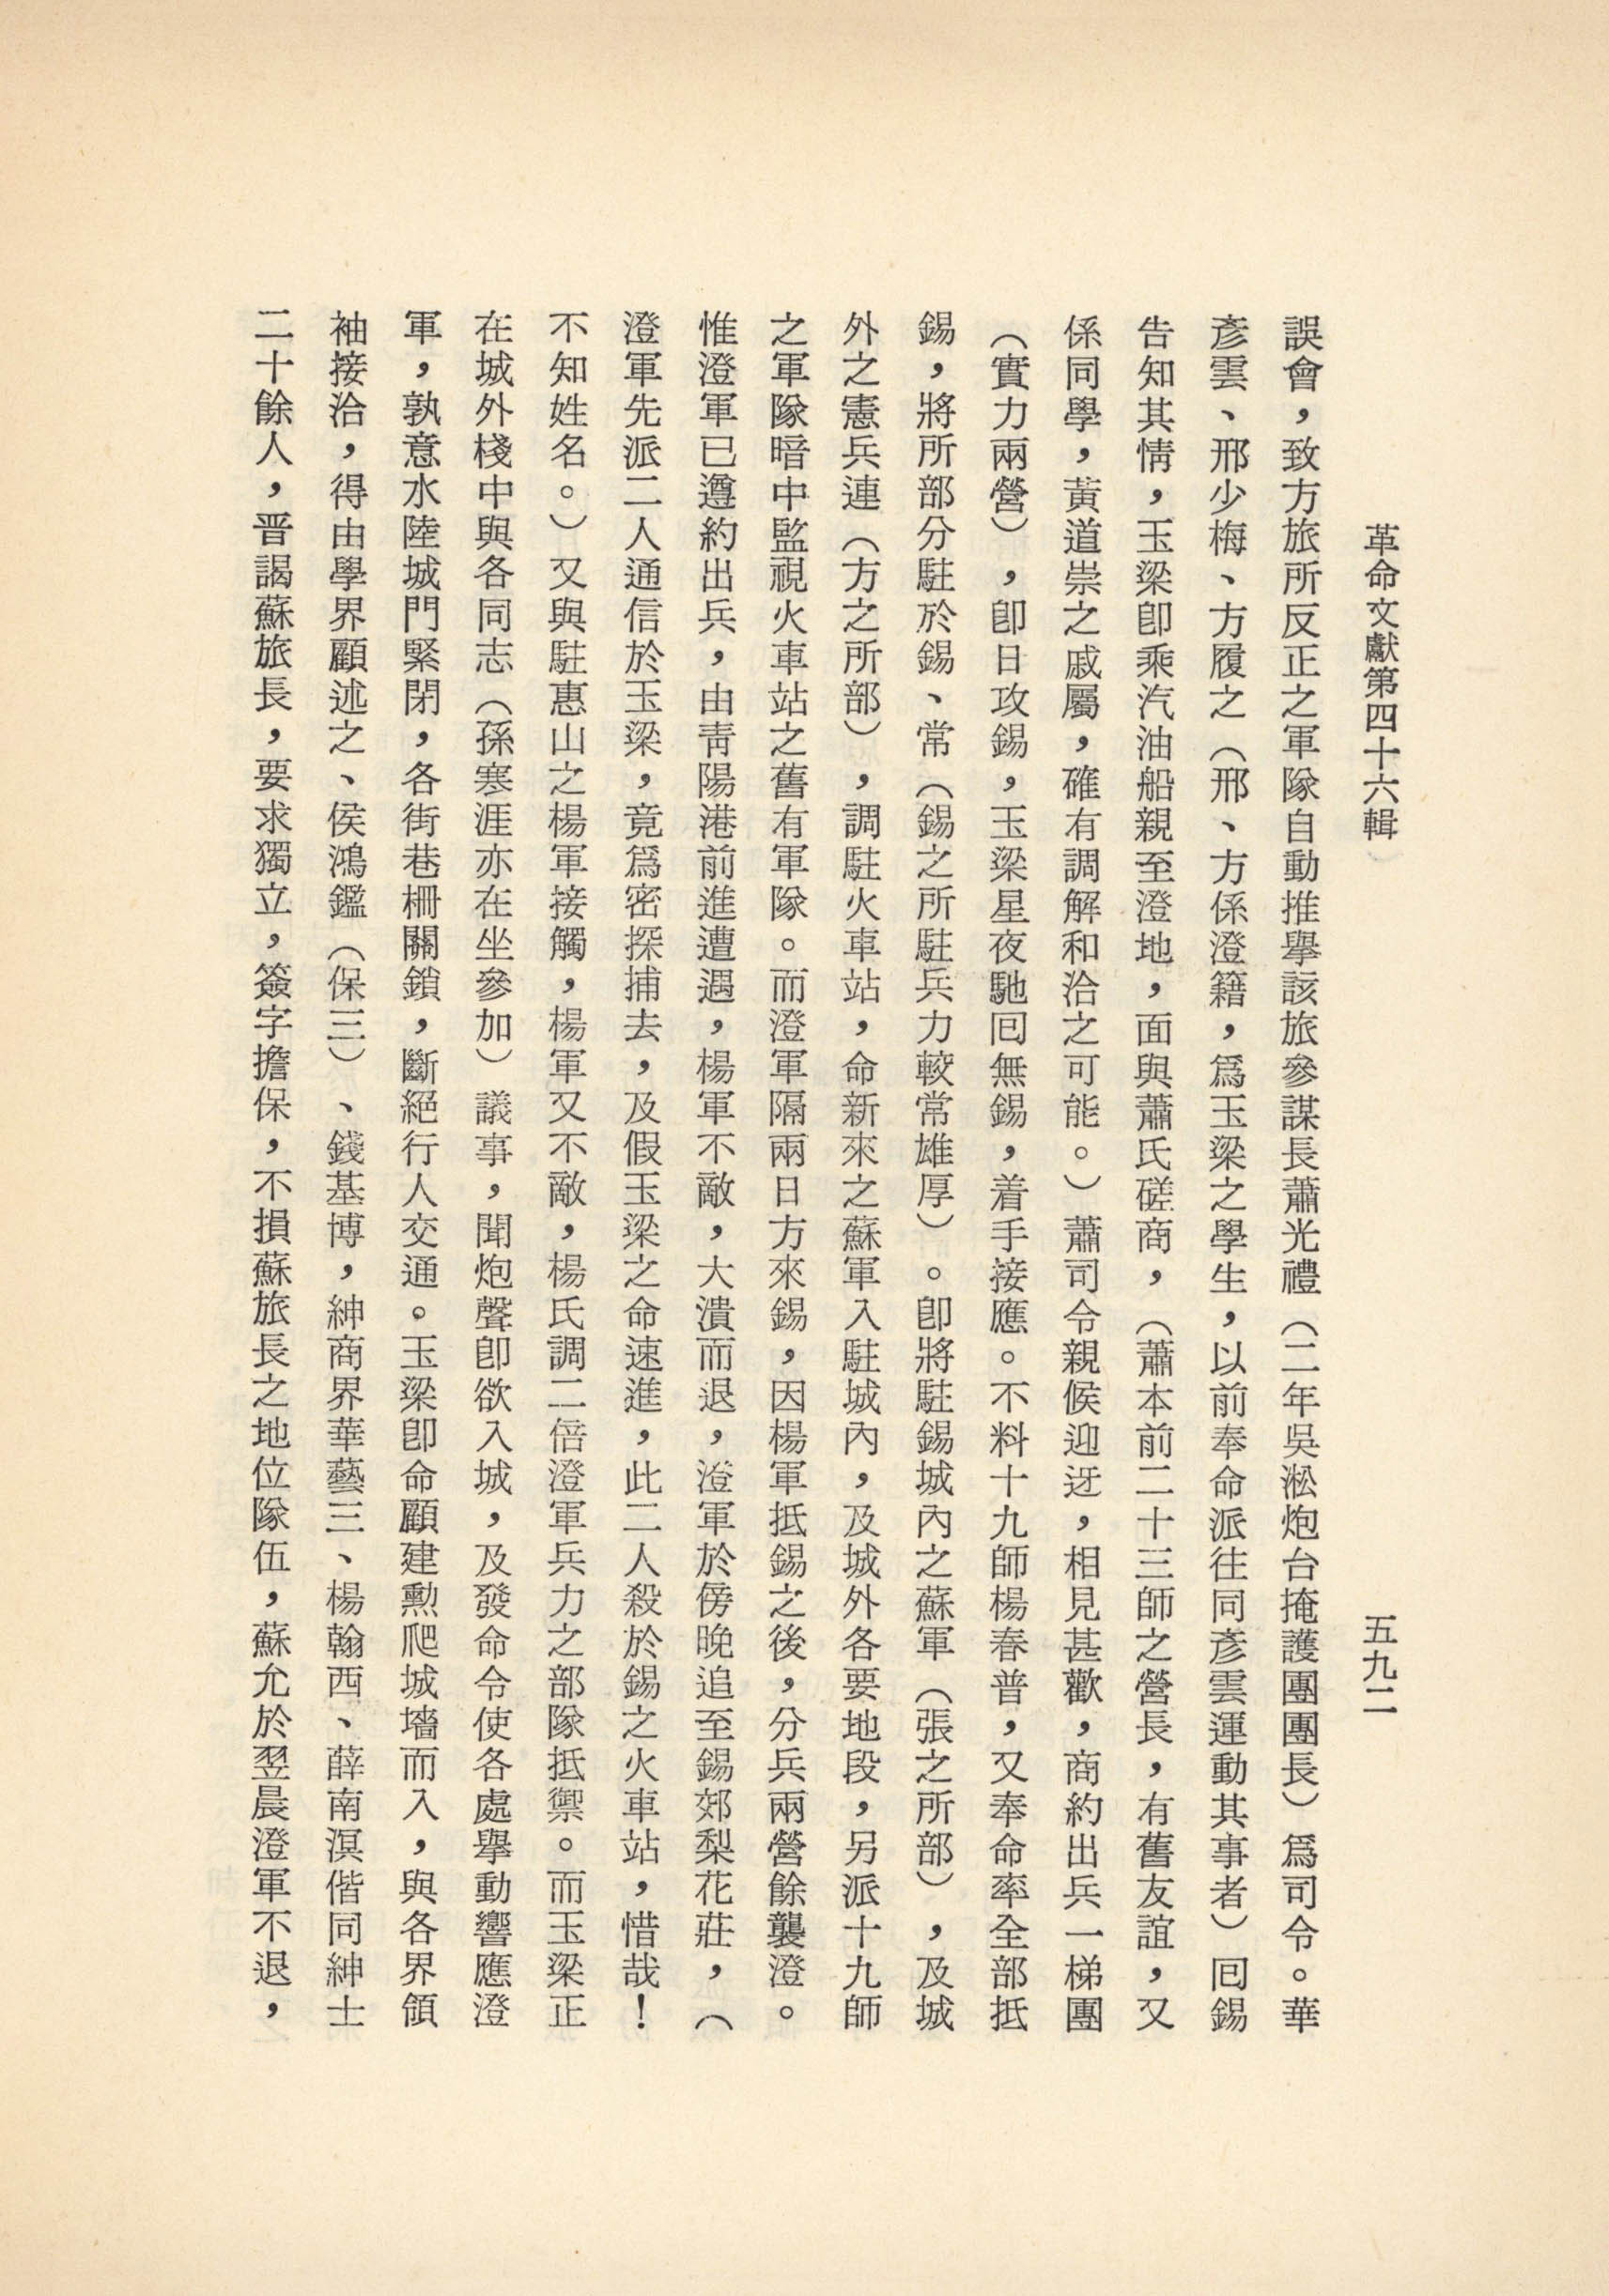 革命文獻第四十六輯
五九二
誤會，致方旅所反正之軍隊自動推擧該旅參謀長蕭光禮（二年吳淞炮台掩護團團長）爲司令。華
彥雲、邢少梅、方履之（邢、方係澄籍，爲玉梁之學生，以前奉命派往同彥雲運動其事者）囘錫
告知其情，玉梁卽乘汽油船親至澄地，面與蕭氏磋商，（蕭本前二十三師之營長，有舊友誼，又
係同學，黃道崇之戚屬，確有調解和洽之可能。）蕭司令親候迎迓，相見甚歡，商約出兵一梯團
（實力兩營），卽日攻錫，玉梁星夜馳囘無錫，着手接應。不料十九師楊春普，又奉命率全部抵
錫，將所部分駐於錫、常（錫之所駐兵力較常雄厚）。卽將駐錫城內之蘇軍（張之所部），及城
外之憲兵連（方之所部），調駐火車站，命新來之蘇軍入駐城內，及城外各要地段，另派十九師
之軍隊暗中監視火車站之舊有軍隊。而澄軍隔兩日方來錫，因楊軍抵錫之後，分兵兩營餘襲澄。
惟澄軍已遵約出兵，由靑陽港前進遭遇，楊軍不敵，大潰而退，澄軍於傍晚追至錫郊梨花莊，（
澄軍先派二人通信於玉梁，竟爲密探捕去，及假玉梁之命速進，此二人殺於錫之火車站，惜哉！
不知姓名。）又與駐惠山之楊軍接觸，楊軍又不敵，楊氏調二倍澄軍兵力之部隊抵禦。而玉梁正
在城外棧中與各同志（孫寒涯亦在坐參加）議事，聞炮聲卽欲入城，及發命令使各處擧動響應澄
軍，孰意水陸城門緊閉，各街巷柵關鎖，斷絕行人交通。玉梁卽命顧建勲爬城墻而入，與各界領
袖接洽，得由學界顧述之、侯鴻鑑（保三）、錢基博，紳商界華藝三、楊翰西、薛南溟偕同紳士
二十餘人，晋謁蘇旅長，要求獨立，簽字擔保，不損蘇旅長之地位隊伍，蘇允於翌晨澄軍不退，